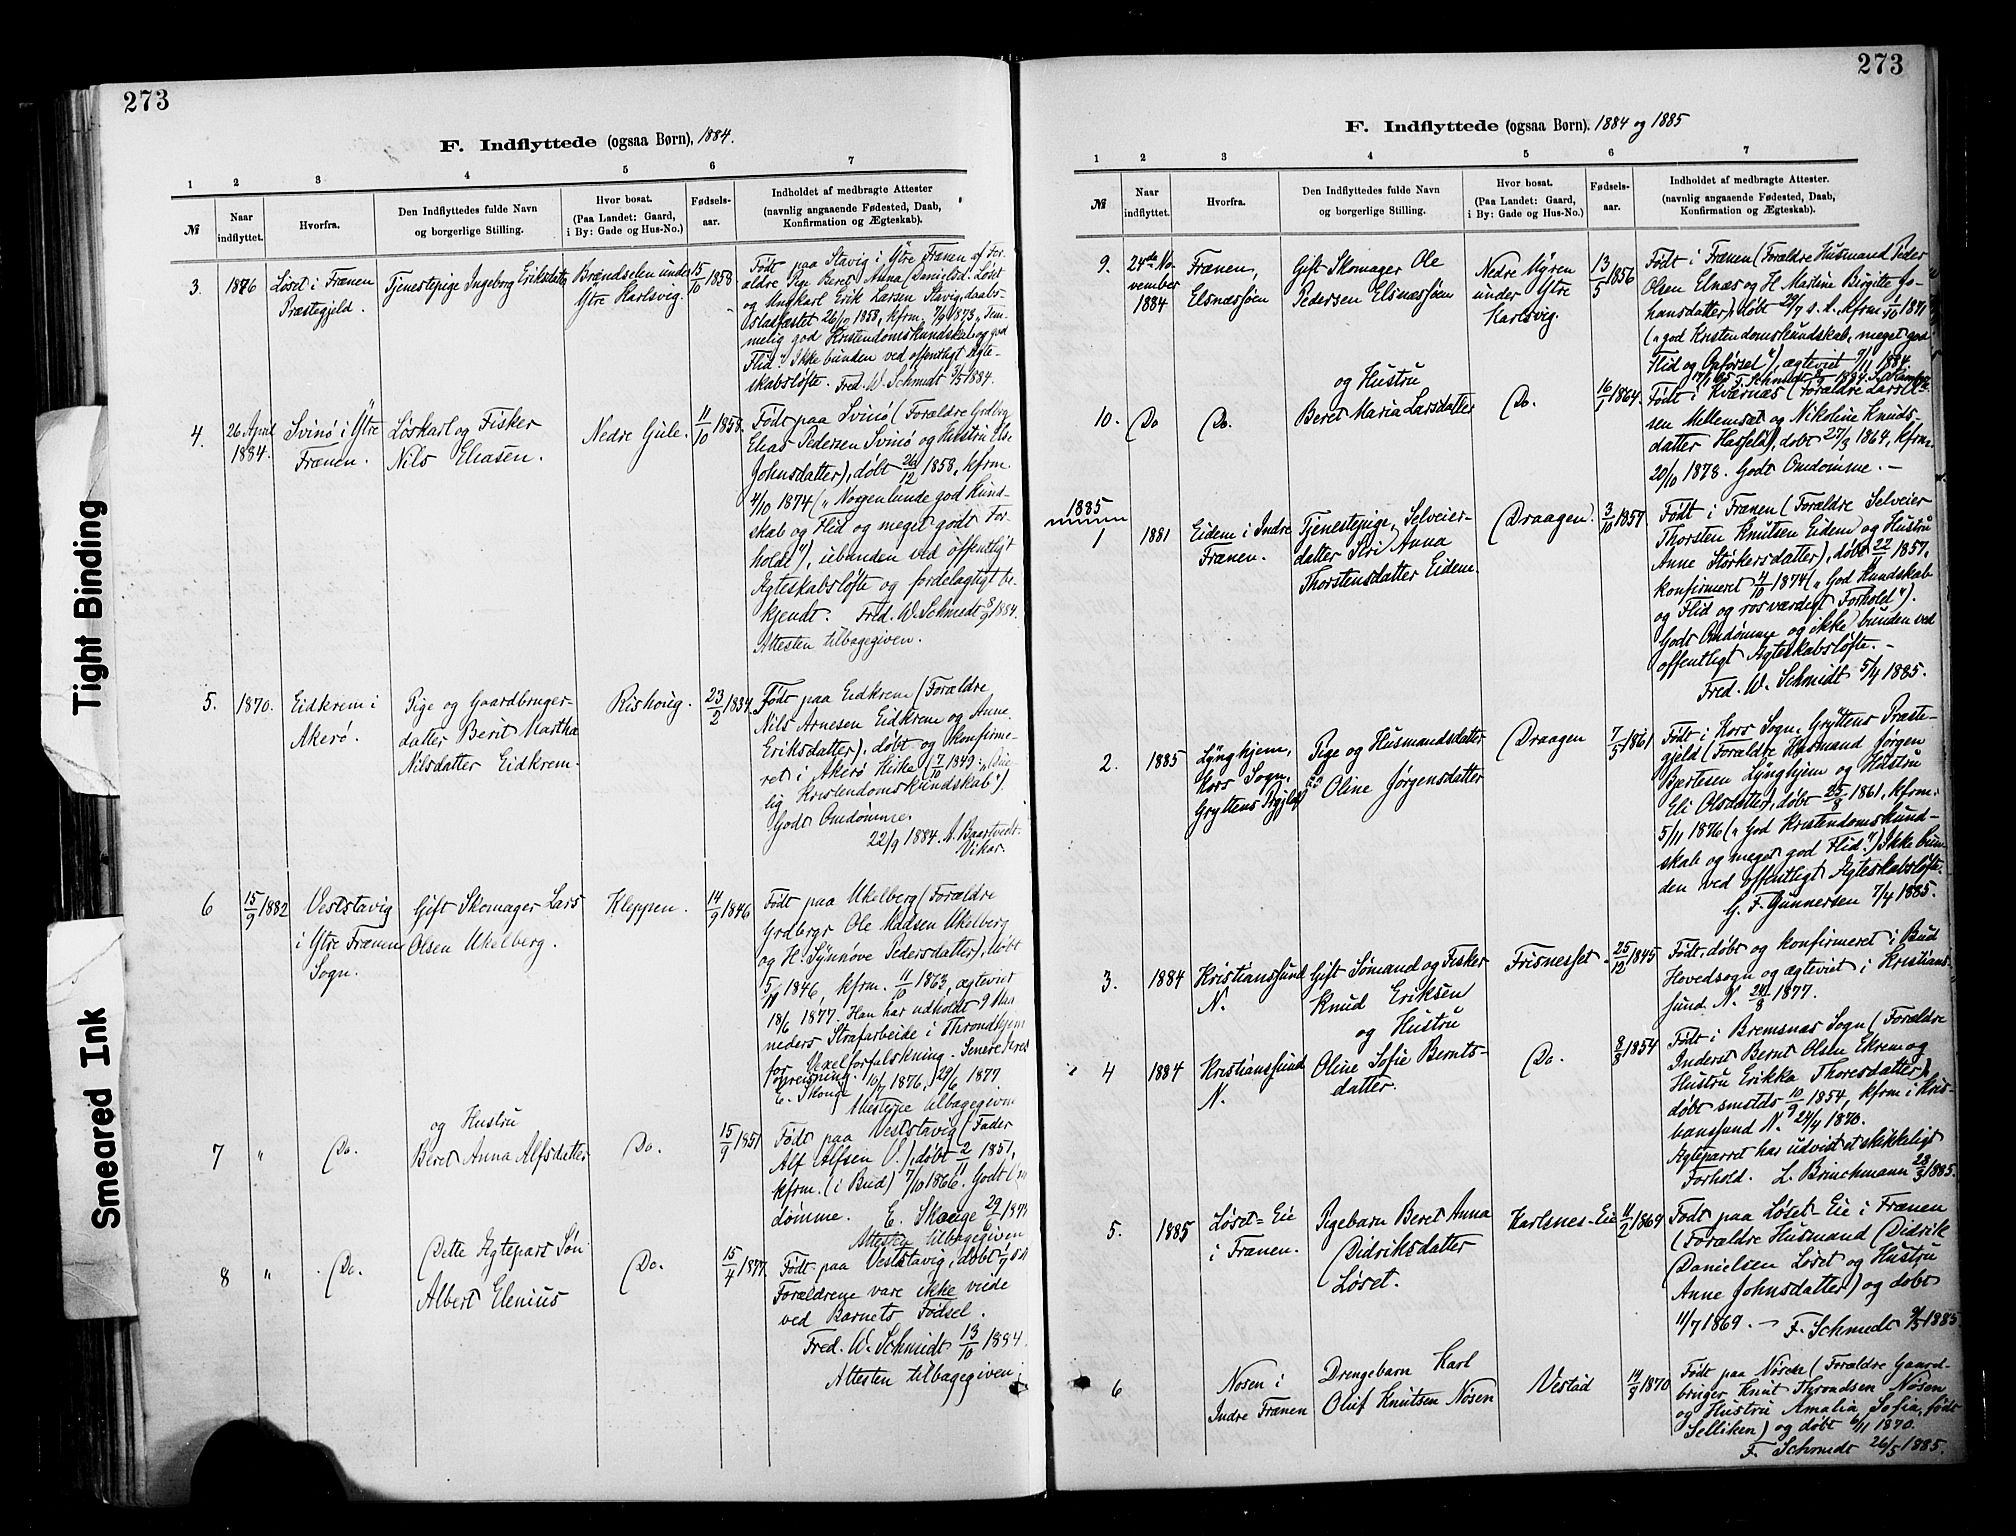 273
F. Indflyttede (ogsaa Børn), 1884.
1 2 3 4 5 6 7
№
Naar indflyttet.
Hvorfra.
Den Indflyttedes fulde Navn
og borgerlige Stilling.
Hvor bosat.
(Paa Landet: Gaard,
i By: Gade og Hus-No.)
Fødsels-
aar.
Indholdet af medbragte Attester
(navnlig angaaende Fødested, Daab,
Konfirmation og Ægteskab).
3. 1876 Løset i Frænen
Præstegjeld.
Tjenestepige Ingeborg Eriksdatter
Brændselen under
Ytre Karlsvig.
15/10 1858
Født paa Stavig i Ytre Frænen af For-
ældre Pige Beret Anna Danielsd. Løset
og Ungkarl Erik Larsen Stavig, daabs-
stadfæstet 26/12 1858, kfrm. 7/9 1873 "Tem-
melig god Kristendomskundskab og god
Flid". Ikke bunden ved offentligt Ægte-
skabsløfte. Fred. W. Schmidt 3/5 1884.
4. 26 April
1884.
Svinø i Ytre
Frænen.
Løskarl og Fisker
Nils Eliasen.
Nedre Gule.
11/10 1858.
Født paa Svinø (Forældre Grdbrg
Elias Pedersen Svinø og Hustru Else
Johnsdatter), døbt 26/12 1858, kfrm.
4/10 1874 ("Nogenlunde god Kund-
skab og Flid og meget godt For-
hold"), ubunden ved offentligt
Ægteskabsløfte og fordelagtigt be-
kjendt. Fred. W. Schmidt 8/9 1884.
Attesten tilbagegiven.
5. 1870. Eidkrem i
Akerø.
Pige og Gaardbruger-
datter Berit Martha
Nilsdatter Eidkrem.
Rishoug.
23/2 1834.
Født paa Eidkrem (Forældre
Nils Arnesen Eidkrem og Anne
Eriksdatter), døbt og konfirme-
ret i Akerø Kirke (7/10 1849
lig Kristendomskundskab").
Godt Omdømme.
22/9 1884. A. Baartvedt.
Vikar.
6 15/9 1882
Veststavig
i Ytre Frænen
Sogn.
Gift Skomager Lars
Olsen Ukelberg.
Kleppen.
14/9 1846
Født paa Ukelberg (Forældre
Grdbrgr Ole Madsen Ukelberg
og H. Synnøve Pedersdatter), døbt
5/11 1846, kfrm. 11/10 1863, ægteviet
18/6 1877. Han har udholdt 9 Maa-
neders Strafarbeide i Throndhjem
for Vexelforfalskning. Senere Æres
opreisning. 10/6 1876, 29/6 1877.
E. Skouge Attesterne tilbagegivne
7 " Do.
og Hustru
Beret Anna Alfsdatter
Do.
15/9 1851
Født paa Veststavig (Fader
Alf Alfsen V.), døbt 2/11 1851,
kfrm. (i Bud) 7/10 1866. Godt Om
dømme. E. Skouge 29/6 1877
Attesten tilbagegiven
8 " Do.
Dette Ægtepars Søn
Albert Elenius
Do.
15/4 1877.
Født paa Veststavig, døbt
Forældrene vare ikke viede
ved Barnets Fødsel.
Fred. W. Schmidt 13/10 1884.
Attesten tilbagegiven.
273
F. Indflyttede (ogsaa Børn). 1884 og 1885
1 2 3 4 5 6 7
№
Naar
indflyttet.
Hvorfra.
Den Indflyttedes fulde Navn
og borgerlige Stilling.
Hvor bosat.
(Paa Landet: Gaard,
i By: Gade og Hus-No.)
Fødsels-
aar.
Indholdet af medbragte Attester.
(navnlig angaaende Fødested, Daab,
Konfirmation og Ægteskab).
9. 24de No-
vember
1884
Frænen,
Elsnæssøen
Gift Skomager Ole
Pedersen Elsnæssøen
Nedre Myren
under Ytre
Karlsvig.
13/5 1856
Født i Frænen (Forældre Husmand Peder
Olsen Elnæs og H. Martine Birgitte Jo-
hansdatter), døbt 27/7 s. A. kfrm 1/10 1871
("god Kristendomskundskab, meget god
Flid og Opførsel"), ægteviet 9/11 1884.
10. Do Do.
og Hustru
Beret Maria Larsdatter
Do.
16/1 1864.
Født i Kværnæs (Forældre Lars
sen Mellemsæt og Nikoline Knuds-
datter Hasfeld), døbt 27/3 1864, kfrm.
20/10 1878. Godt Omdømme. —
1885
1 1881 Eidem i Indre
Frænen.
Tjenestepige, Selveier-
datter Siri Anna
Thorstensdatter Eidem.
Draagen.
3/10 1857
Født i Frænen (Forældre Selveier
Thorsten Knutsen Eidem og Hustru
Anne Størkersdatter), døbt 22/11 1857,
konfirmeret 4/10 1874 ("God Kundskab
og Flid og rosværdigt Forhold").
Godt Omdømme og ikke bunden ved
offentligt Ægteskabsløfte. —
Fred. W. Schmidt 5/4 1885.
2. 1885 Lynghjem,
Kors Sogn,
Gryttens Prgjld
Pige og Husmandsdatter
Oline Jørgensdatter
Draagen
7/5 1861
Født i Kors Sogn, Gryttens Præste-
gjeld (Forældre Husmand Jørgen
Bertesen Lynghjem og Hustru
Eli Olsdatter), døbt 25/8 1861, kfrm.
5/11 1876 ("God Kristendomskund-
skab og meget god Flid") Ikke bun
den ved offentligt Ægteskabsløfte.
G. F. Gunnersen 7/4 1885.
3. 1884 Kristianssund
N.
Gift Sømand og Fisker
Knud Eriksen
Frisnesset
25/12 1845
Født, døbt og konfirmeret i Bud
Hovedsogn og ægteviet i Kristians-
sund N. 24/8 1877.
4 1884 Kristianssund
N.
og Hustru
Oline Sofie Bernts-
datter.
Do.
8/8 1854
Født i Bremsnæs Sogn (Forældre
Inderst Bernt Olsen Ekrem og
Hustru Erikka Thoresdatter),
døbt smstds 10/9 1854, kfrm i Kris-
tianssund N. 24/4 1870.
Ægteparret har udvist et skikkeligt
Forhold. L. Brinchmann 23/3 1885.
5. 1885 Løset-Eie
i Frænen.
Pigebarn Beret Anna
Didriksdatter
Løset.
Karlsnes-Eie
11/2 1869
Født paa Løset-Eie i Frænen
(Forældre Husmand Didrik
Danielsen Løset og Hustru
Anne Johnsdatter) og døbt
11/7 1869. — F. Schmidt 9/5 1885.
6 Nøsen i
Indre Frænen
Drengebarn Karl
Oluf Knutsen Nøsen
Vestad
14/8 1870
Født paa Nøsen (Forældre Gaard-
bruger Knut Throndsen Nøsen
og Hustru Amalia Sofia, født
Selliken) og døbt 6/11 1870.
F. Schmidt 26/5 1885.
Tight Binding
Smeared Ink